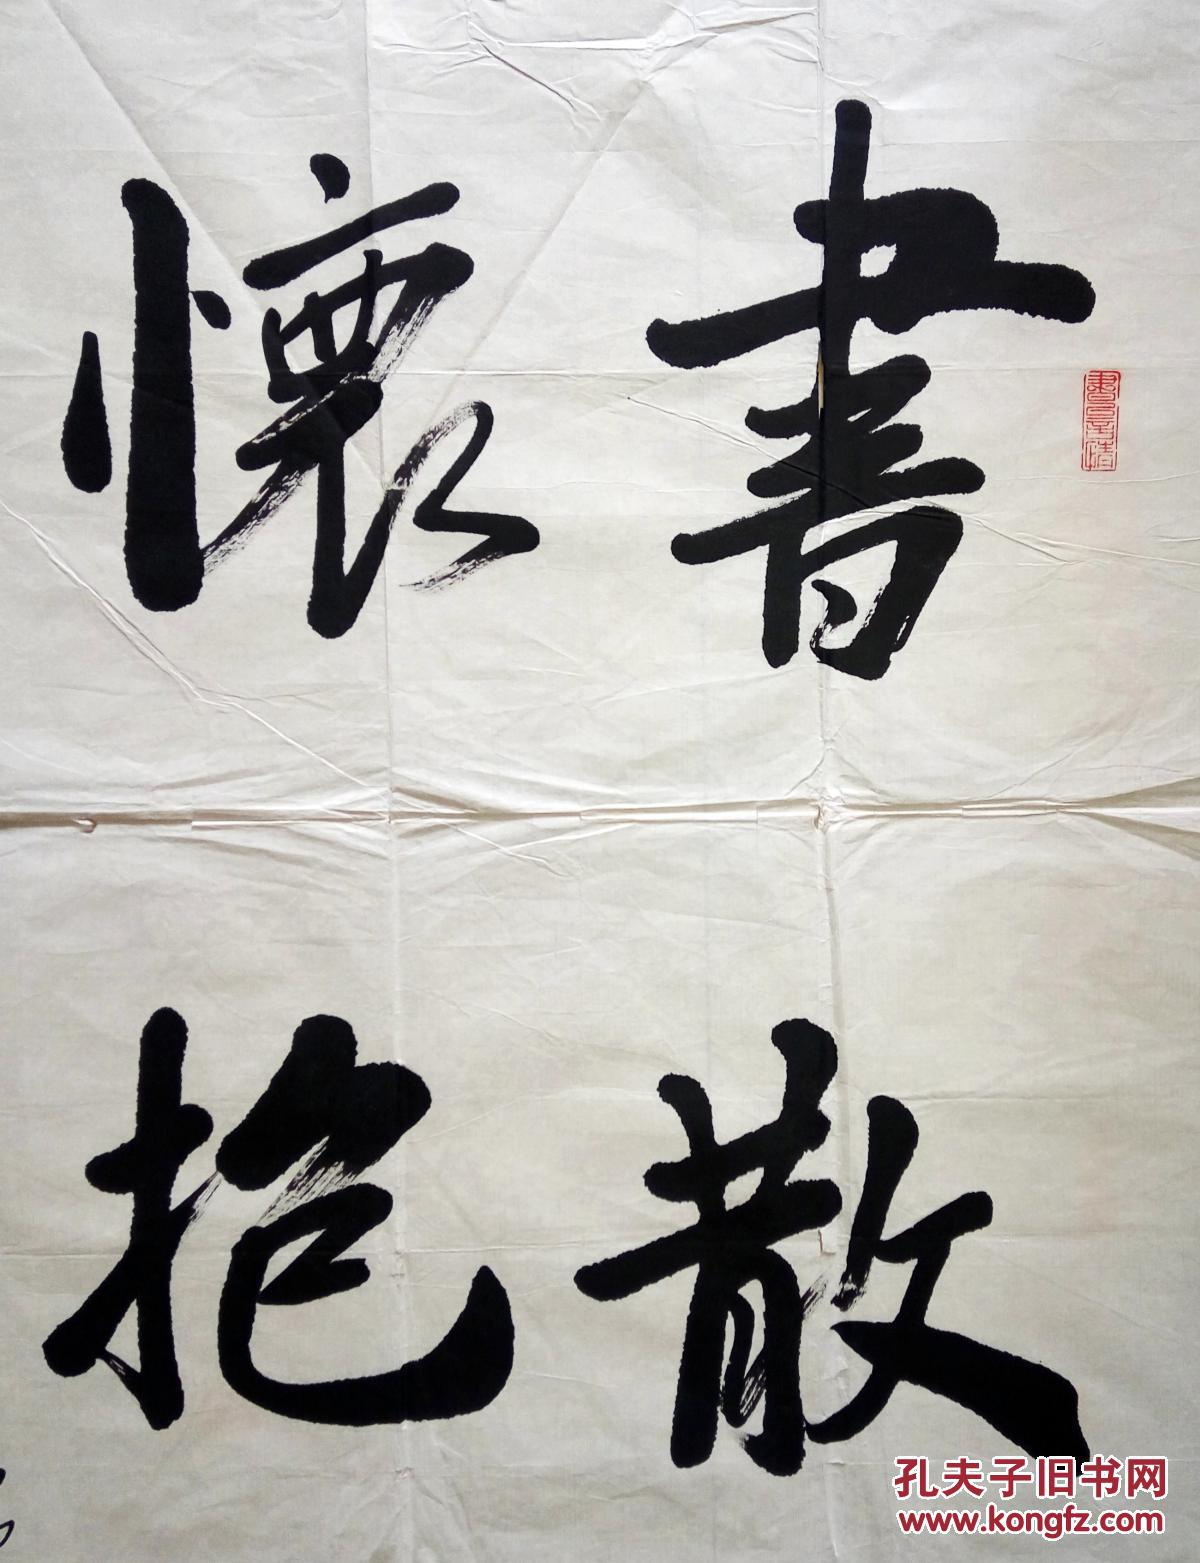 書散
懷抱
孔夫子旧书网
www.kongfz.com